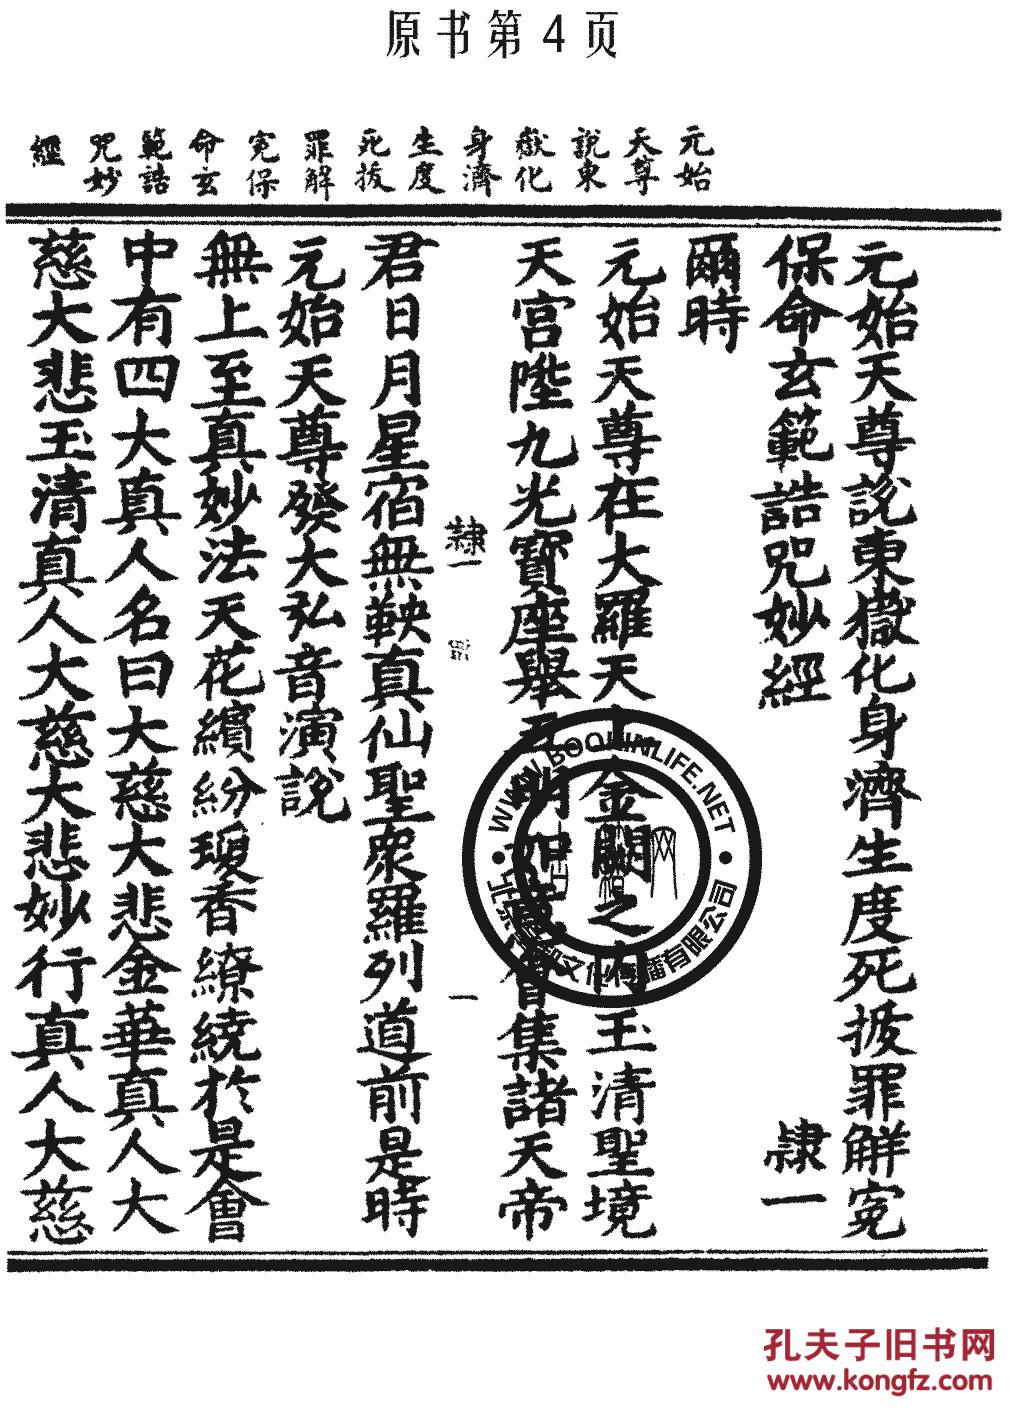 原书第4页
元始
天尊
說東
嶽化
身濟
生度
死拔
罪解
冤保
命玄
範誥
咒妙
經
元始天尊說東嶽化身濟生度死拔罪解冤
保命玄範誥咒妙經
隸一
爾時
元始天尊在大羅天上金闕之內玉清聖境
天宮陞九光寶座舉五明如意會集諸天帝
隸一
一
君日月星宿無鞅真仙聖眾羅列道前是時
元始天尊發大弘音演說
無上至真妙法天花繽紛瓊香繚繞於是會
中有四大真人名曰大慈大悲金華真人大
慈大悲玉清真人大慈大悲妙行真人大慈
WWW.BOOKINLIFE.NET
文化傳播有限公司
孔夫子旧书网
www.kongfz.com